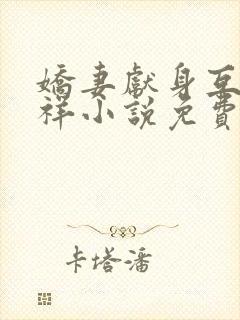 嬌妻獻身互
祥小說免費
卡塔潘